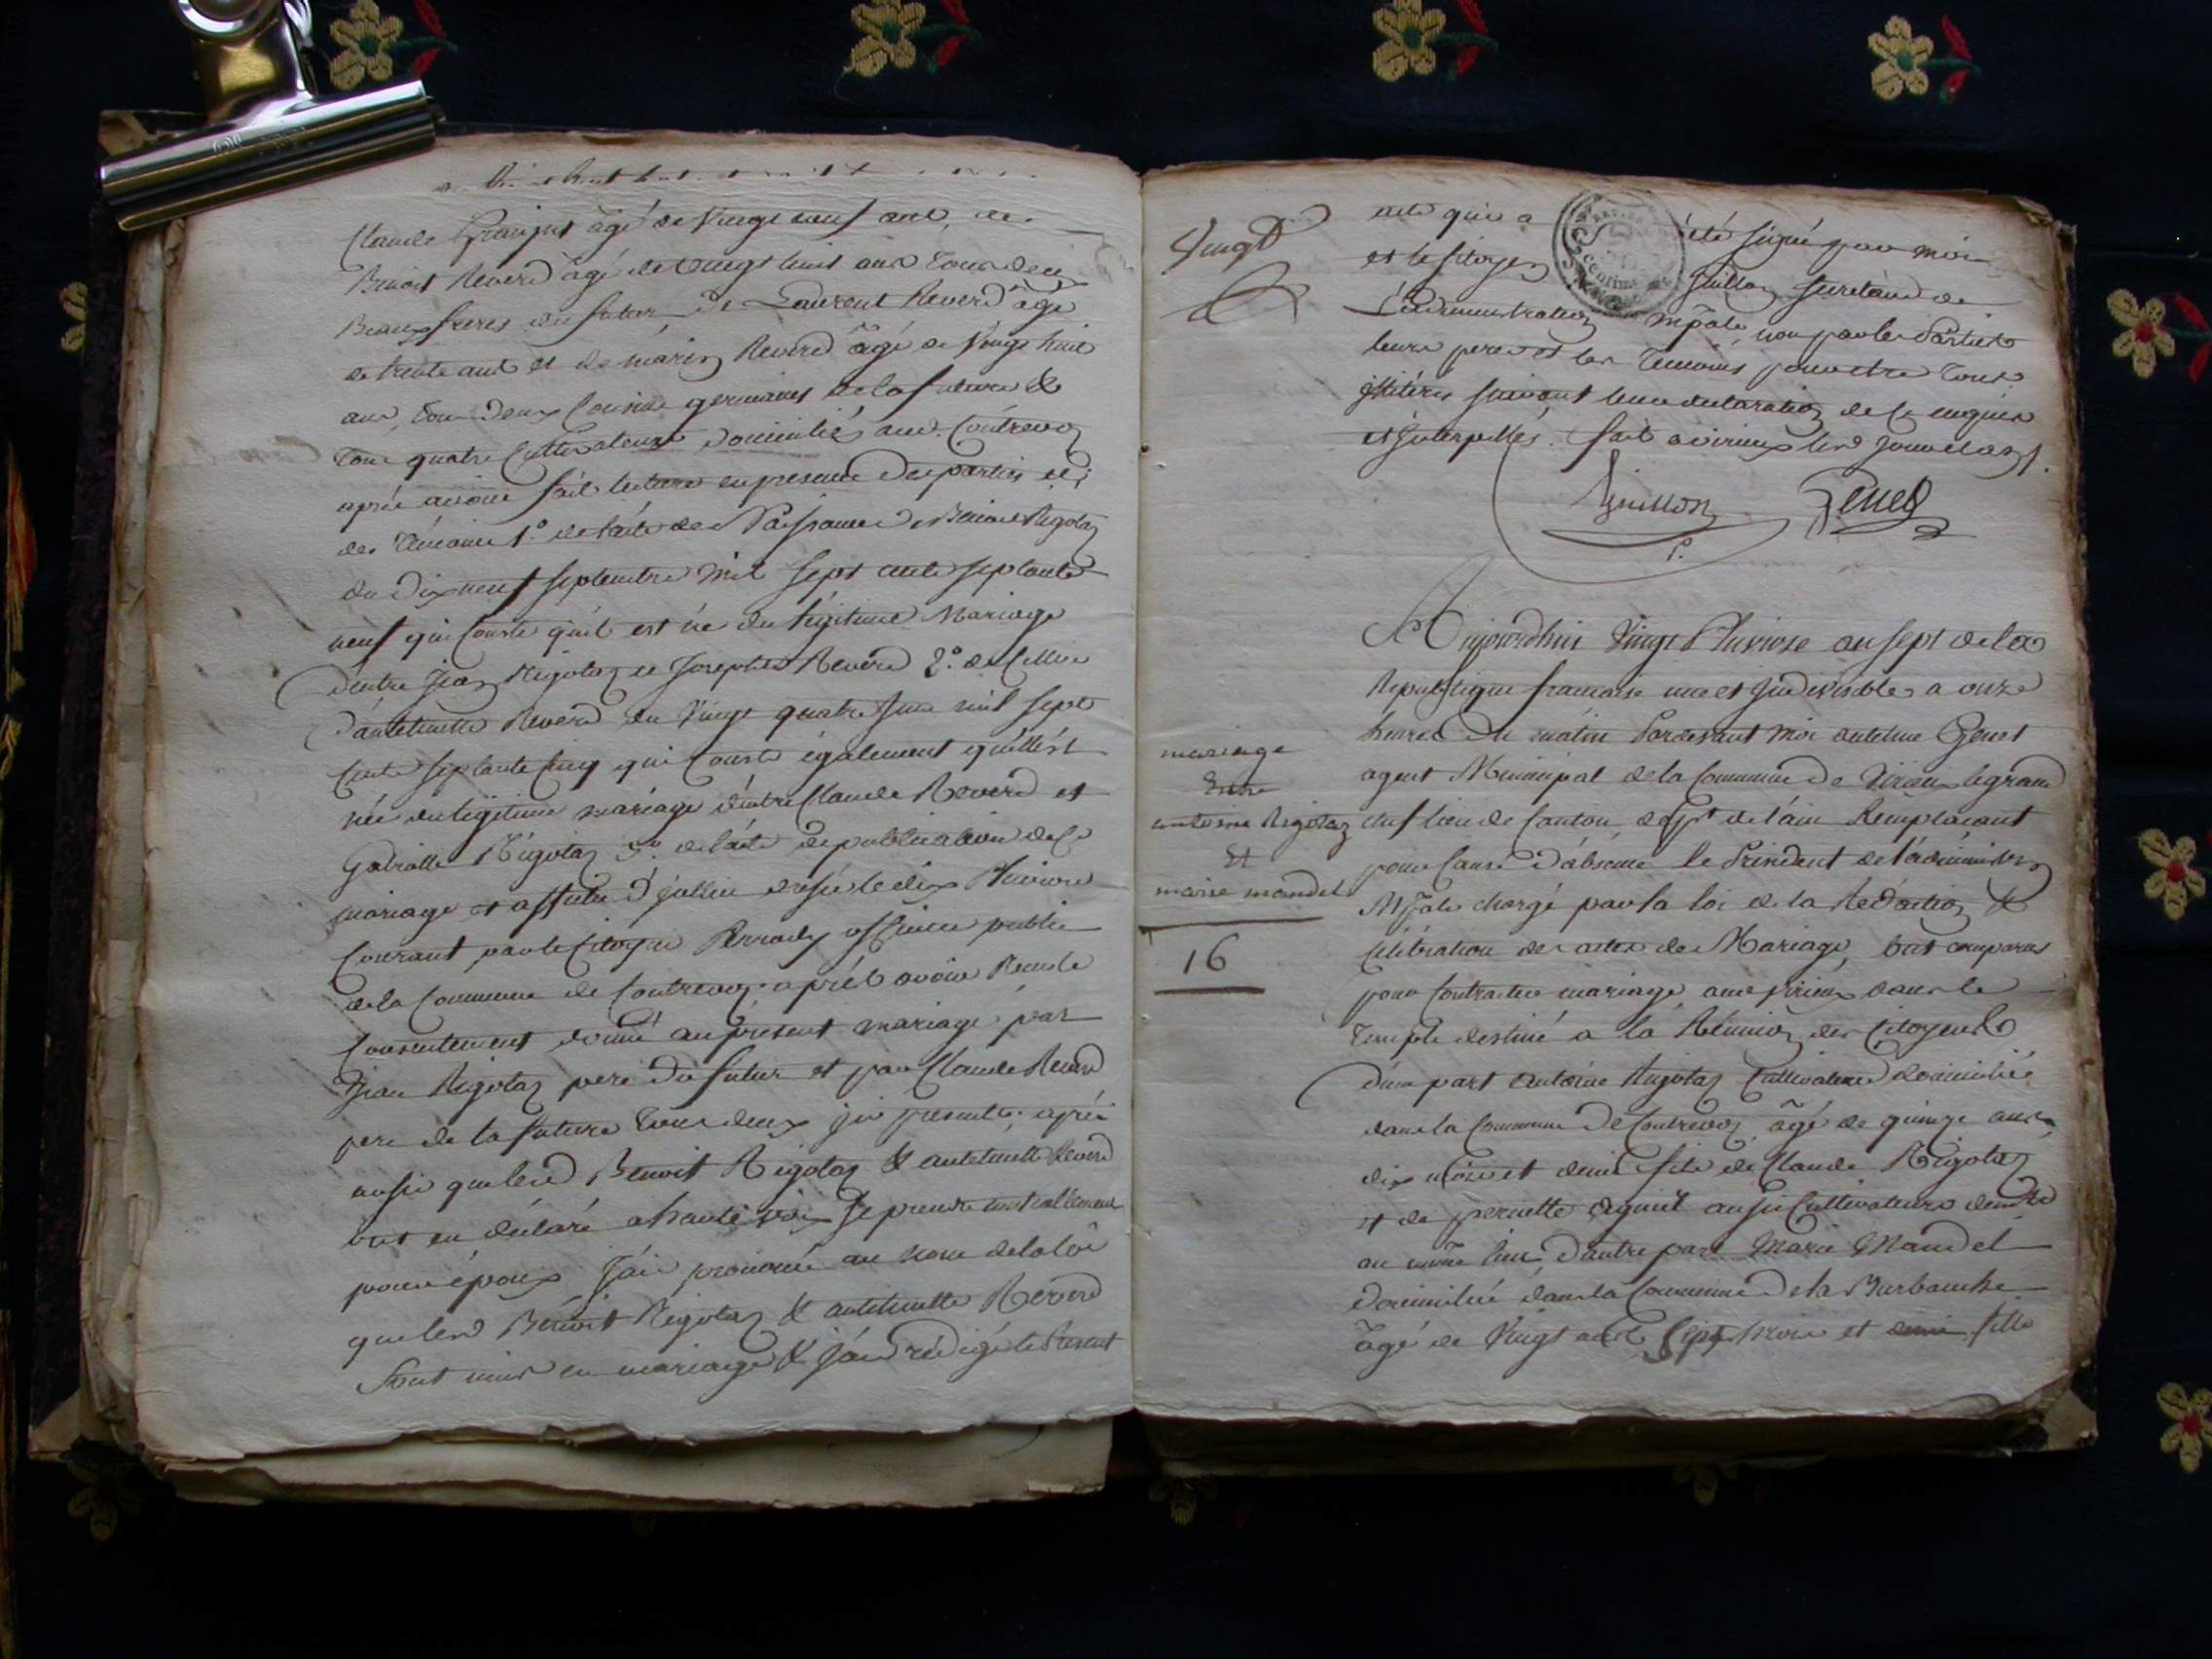 Claude âgé de Vingt neuf ans, de
Benoit Reverd âgé de Vingt huit ans Tous deux
Beaux freres du futur, de Laurent Reverd âgé
de trente ans et de marin Reverd âgé de Vingt huit
ans, tous deux Cousins germains de la future &
Tous quatre Cultivateurs domiciliés aud. Contrevoz
après avoir fait lecture en presence des parties et
des Témoins 1.º de l'acte de Naissance de Benoit Rigotaz
du dix neuf septembre mil sept cents septante
neuf qui Conste qu'il est né du légitime Mariage
d'entre Jean Rigotaz et Josephte Reverd 2.º de Celle
d'antelmette Reverd du Vingt quatre Juin mil sept
Cents septante Cinq qui Conste également qu'elle est
née du légitime mariage d'entre Claude Reverd et
Rigotaz 3.º de l'acte de publication de Ce
mariage et affiche d'jcellui le dix Pluviose
Courant par le Citoyen officier public
de la Commune de Contrevoz, après avoir Reçu le
Consentement donné au present mariage par
Jean Rigotaz pere du futur et par Claude Reverd
pere de la future Tous deux jci presents, après
aussi que led Benoit Rigotaz & antelmette Reverd
ont eu déclaré a haute voix se prendre mutuellement
pour époux, J'ai prononcé au nom de la loi
que led Benoit Rigotaz & antelmette Reverd
Sont unis en mariage & J'ai rédigé le Present
Vingt
acte qui a été signé par moi
et le Citoyen Guillon secretaire de
L'administration mpale, non par les Parties
leurs peres et les Temoins pour etre Tous
jllitérés suivant leur declaration de Ce enquis
et jnterpellés. fait a virieux led jour et an
Guillon Genet
mariage
Entre
antoine Rigotaz
Et
marie mandel
16
Aujourdhui Vingt Pluviose an sept de la
Republique francaise une et Jndivisible, a onze
heures du matin Pardevant moi antelme Genet
agent Municipal de la Commune de Virieu legrand
chef lieu de Canton, dept de l'ain Remplacant
pour Cause d'absence le President de l'administon
Mpale chargé par la loi de la Rédaction &
Célébration des actes de Mariage, ont comparus
pour Contracter mariage, aud virieux dans le
Temple destiné a la Réunion des Citoyens
d'une part antoine Rigotaz Cultivateur domicilié
dans la Commune de Contrevoz, âgé de quinze ans
dix mois et demi fils de Claude Rigotaz
et de pernette aussi Cultivateurs
au même lieu, d'autre part Marie Mandel
domiciliée dans la Commune de la Burbanche
âgé de Vingt ans Sept mois et demi fille